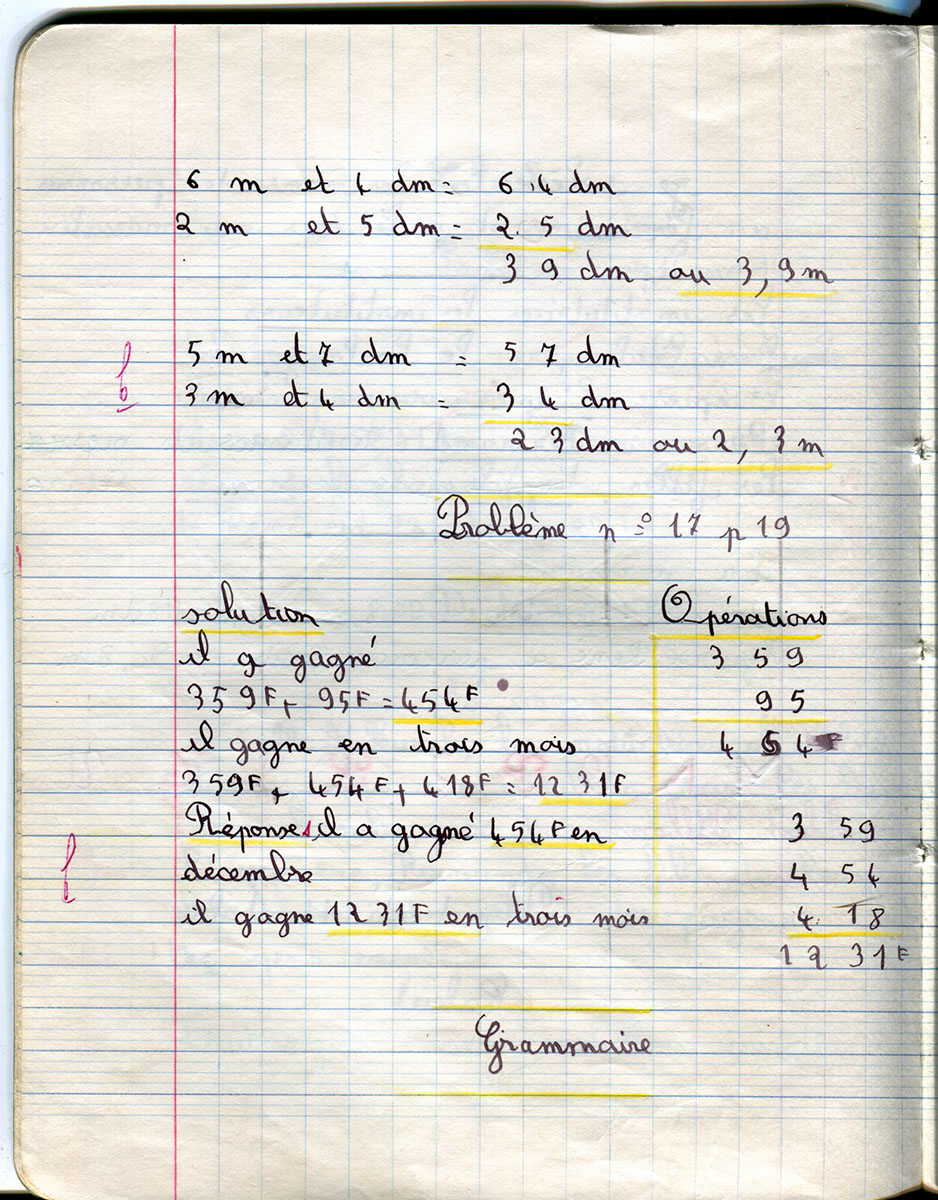 6 m et 4 dm = 6.4 dm
2 m et 5 dm = 2.5 dm
3 9 dm ou 3,9 m
5 m et 7 dm = 5 7 dm
3 m et 4 dm = 3 4 dm
2 3 dm ou 2, 3 m
Problème n° 17 p 19
solution
il a gagné
359F + 95F = 454F
il gagne en trois mois
359F + 454F + 418F = 1231F
Réponse il a gagné 454F en
décembre
il gagne 1231F en trois mois
Opérations
3 5 9
9 5
4 5 4F
3 59
4 54
4 18
12 31F
Grammaire